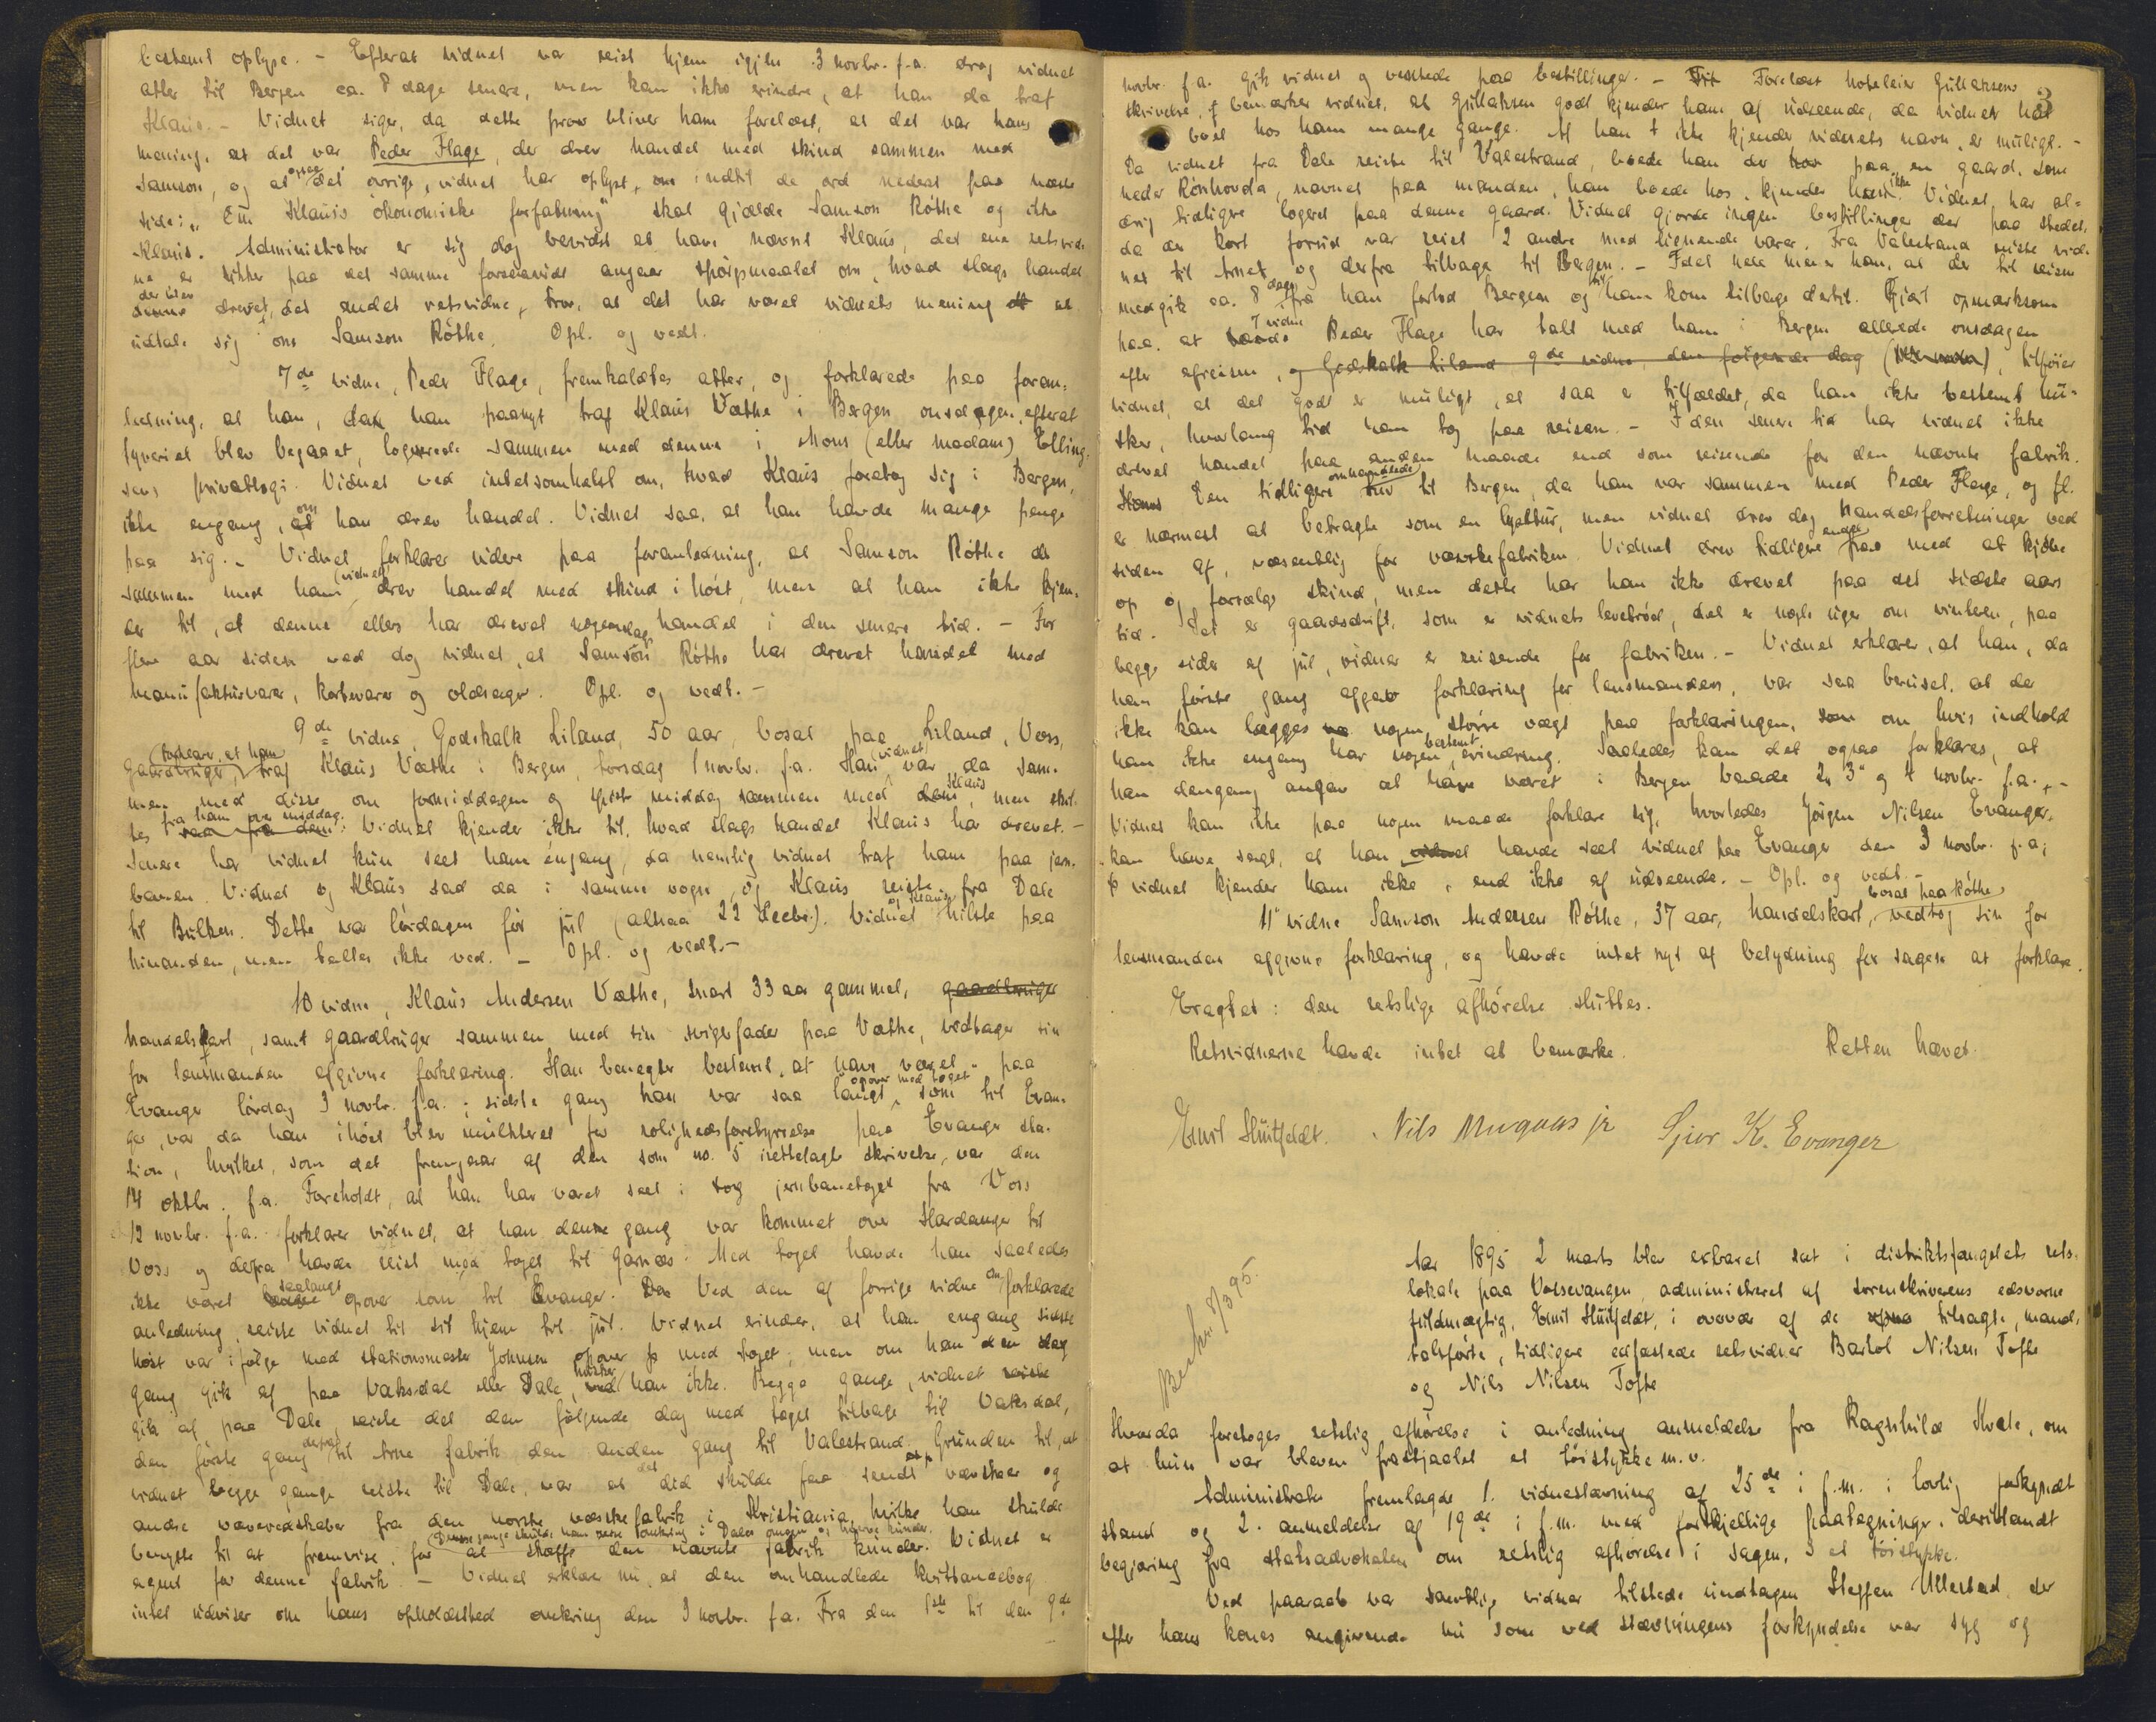 bestemt oplyse. – Efterat vidnet var reist hjem igjen 3 novbr. f.a. drog vidnet
atter til Bergen ca. 8 dage senere, men kan ikke erindre, at han da traf
Klaus. – Vidnet siger, da dette prov bliver ham forelæst, at det var hans
mening, at det var Peder Flage, der drev handel med skind sammen med
Samson, og at ogsaa det øvrige, vidnet har oplyst, om indtil de ord nederst paa næste
side: "Om Klaus's økonomiske forfatning" skal gjælde Samson Røthe og ikke
Klaus. Administrator er sig dog bevidst at have nævnt Klaus, det ene retsvid-
ne er sikker paa det samme forsaavidt angaar spørgsmaalet om, hvad slags handel
der blev drevet, det andet retsvidne tror, at det har været vidnets mening at
udtale sig om Samson Røthe. Opl. og vedt.
7de vidne, Peder Flage, fremkaldtes atter, og forklarede paa foran-
ledning, at han, da han paanyt traf Klaus Væthe i Bergen onsdagen, efterat
tyveriet blev begaaet, logerede sammen med denne i Mons (eller madam) Elling-
sens privatlogi. Vidnet ved intetsomhelst om, hvad Klaus foretog sig i Bergen,
ikke engang, om han drev handel. Vidnet saa, at han havde mange penge
paa sig. – Vidnet forklarer videre paa foranledning, at Samson Røthe
sammen med ham (vidnet) drev handel med skind i høst, men at han ikke kjen-
der til, at denne ellers har drevet nogenslags handel i den senere tid. – For
flere aar siden ved dog vidnet, at Samson Røthe har drevet handel med
manufakturvarer, kortevarer og oldsager. Opl. og vedt. –
9de vidne, Godskalk Liland, 50 aar, bosat paa Liland, Voss,
gaardbruger, forklarer, at han traf Klaus Væthe i Bergen, torsdag 1 novbr. f.a. Han (vidnet) var da sam-
men med disse om formiddagen og spiste middag sammen med Klaus, men skil-
tes fra ham over middag. Vidnet kjender ikke til, hvad slags handel Klaus har drevet. –
Senere har vidnet kun seet ham éngang, da nemlig vidnet traf ham paa jern-
banen. Vidnet og Klaus sad da i samme vogn, og Klaus reiste fra Dale
til Bulken. Dette var lørdagen før jul (altsaa 22 Decbr.). Vidnet og Klaus hilste paa
hinanden, men taltes ikke ved. – Opl. og vedt. –
10 vidne, Klaus Andersen Væthe, snart 33 aar gammel, gaardbruger
handelskarl, samt gaardbruger sammen med sin svigerfader paa Væthe, vedtager sin
for lensmanden afgivne forklaring. Han benegter bestemt, at have været paa
Evanger lørdag 3 novbr. f.a.; sidste gang han var saa langt "opover med toget" som til Evan-
ger, var da han i høst blev mulkteret for rolighedsforstyrrelse paa Evanger sta-
tion, hvilket, som det fremgaar af den som no. 5 irettelagte skrivelse, var den
14 oktbr. f.a. Foreholdt, at han har været seet i jernbanetoget fra Voss
12 novbr. f.a. forklarer vidnet, at han denne gang var kommet over Hardanger til
Voss og derfra havde reist med toget til Garnæs. Med toget havde han saaledes
ikke været saalangt opover som til Evanger. Ved den af forrige vidne omforklarede
anledning reiste vidnet til sit hjem til jul. Vidnet erindrer, at han engang sidste
høst var i følge med stationsmester Johnsen opover med toget; men om han den
gang gik af paa Vaksdal eller Dale, husker han ikke. Begge gange, vidnet
gik af paa Dale, reiste det den følgende dag med toget tilbage til Vaksdal,
den første gang derfra til Arne fabrik, den anden gang til Valestrand. Grunden til, at
vidnet begge gange reiste til Dale, var at det did skulde faa sendt op vævskeer og
andre væveredskaber fra den norske vævskefabrik i Kristiania, hvilke han skulde
benytte til at fremvise, for at skaffe den nævnte fabrik kunder. Vidnet er
agent for denne fabrik. – Vidnet erklærer nu, at den omhandlede kvittancebog
intet udviser om hans opholdssted omkring den 3 novbr. f.a. Fra den 1ste til den 9de
3
novbr. f.a. gik vidnet og ventede paa bestillinger. – Forelæst hoteleier Gullaksens
skrivelse, bemærker vidnet, at Gullaksen godt kjender ham af udseende, da vidnet har
boet hos ham mange gange. At han ikke kjender vidnets navn, er muligt. –
Da vidnet fra Dale reiste til Valestrand, boede han der paa en gaard, som
heder Rønhovda, navnet paa manden, han boede hos, kjender han ikke. Vidnet har al-
drig tidligere logeret paa denne gaard. Vidnet gjorde ingen bestillinger der paa stedet,
da der kort forud var reist 2 andre med lignende varer. Fra Valestrand reiste vid-
net til Arne, og derfra tilbage til Bergen. – I det hele mener han, at der til reisen
medgik ca. 8 dage fra han forlod Bergen og til han kom tilbage dertil. Gjort opmærksom
paa, at 7 vidne Peder Flage har talt med ham i Bergen allerede onsdagen
efter afreisen, og Godskalk Liland 9de vidne, den følgende dag, tilføier
vidnet, at det godt er muligt, at saa er tilfældet, da han ikke bestemt hu-
sker, hvorlang tid han tog paa reisen. – I den senere tid har vidnet ikke
drevet handel paa anden maade end som reisende for den nævnte fabrik.
Den tidligere omhandlede tur til Bergen, da han var sammen med Peder Flage, og fl.
er nærmest at betragte som en lysttur, men vidnet drev dog handelsforretninger ved
siden af, væsentlig for vævskefabriken. Vidnet drev tidligere endel med at kjøbe
op og forsælge skind, men dette har han ikke drevet paa det sidste aars
tid. Det er gaardsdrift, som er vidnets levebrød, det er nogle uger om vinteren, paa
begge sider af jul, vidnet er reisende for fabriken. – Vidnet erklærer, at han, da
han første gang afgav forklaring for lensmanden, var saa beruset, at der
ikke kan lægges nogen større vægt paa forklaringen, om hvis indhold
han ikke engang har nogen bestemt erindring. Saaledes kan det ogsaa forklares, at
han dengang angav at have været i Bergen baade 2, 3 og 4 novbr. f.a. –
Vidnet kan ikke paa nogen maade forklare sig, hvorledes Jørgen Nilsen Evanger
kan have sagt, at han havde seet vidnet paa Evanger den 3 novbr. f.a.;
vidnet kjender ham ikke, end ikke af udseende. – Opl. og vedt. –
11 vidne Samson Andersen Røthe, 37 aar, handelskarl, bosat paa Røthe, vedtog sin for
lensmanden afgivne forklaring, og havde intet nyt af betydning for sagen at forklare.
Eragtet: den retslige afhørelse sluttes.
Retsvidnerne havde intet at bemærke. Retten hævet.
Emil Huitfeldt. Nils Mugaas jr Sjur K. Evanger
Aar 1895 2 marts blev extraret sat i distriktsfængslets rets-
lokale paa Vossevangen, administreret af sorenskriverens edsvorne
fuldmægtig, Emil Huitfeldt, i overvær af de tilsagte, mand-
talsførte, tidligere edfæstede retsvidner Bartol Nilsen Tofte
og Nils Nilsen Tofte
Beskr. 8/3 95.
Hvorda foretoges retslig afhørelse i anledning anmeldelse fra Ragnhild Kvale, om
at hun var bleven frastjaalet et tøistykke m.v.
Administrator fremlagde 1. vidnestævning af 25de i f.m. i lovlig forkyndt
stand og 2. anmeldelse af 19de i f.m. med forskjellige paategninger, deriblandt
begjæring fra statsadvokaten om retslig afhørelse i sagen, 3 et tøistykke.
Ved paaraab var samtlige vidner tilstede undtagen Steffen Ullestad, der
efter hans kones angivende nu som ved stævningens forkyndelse var syg og